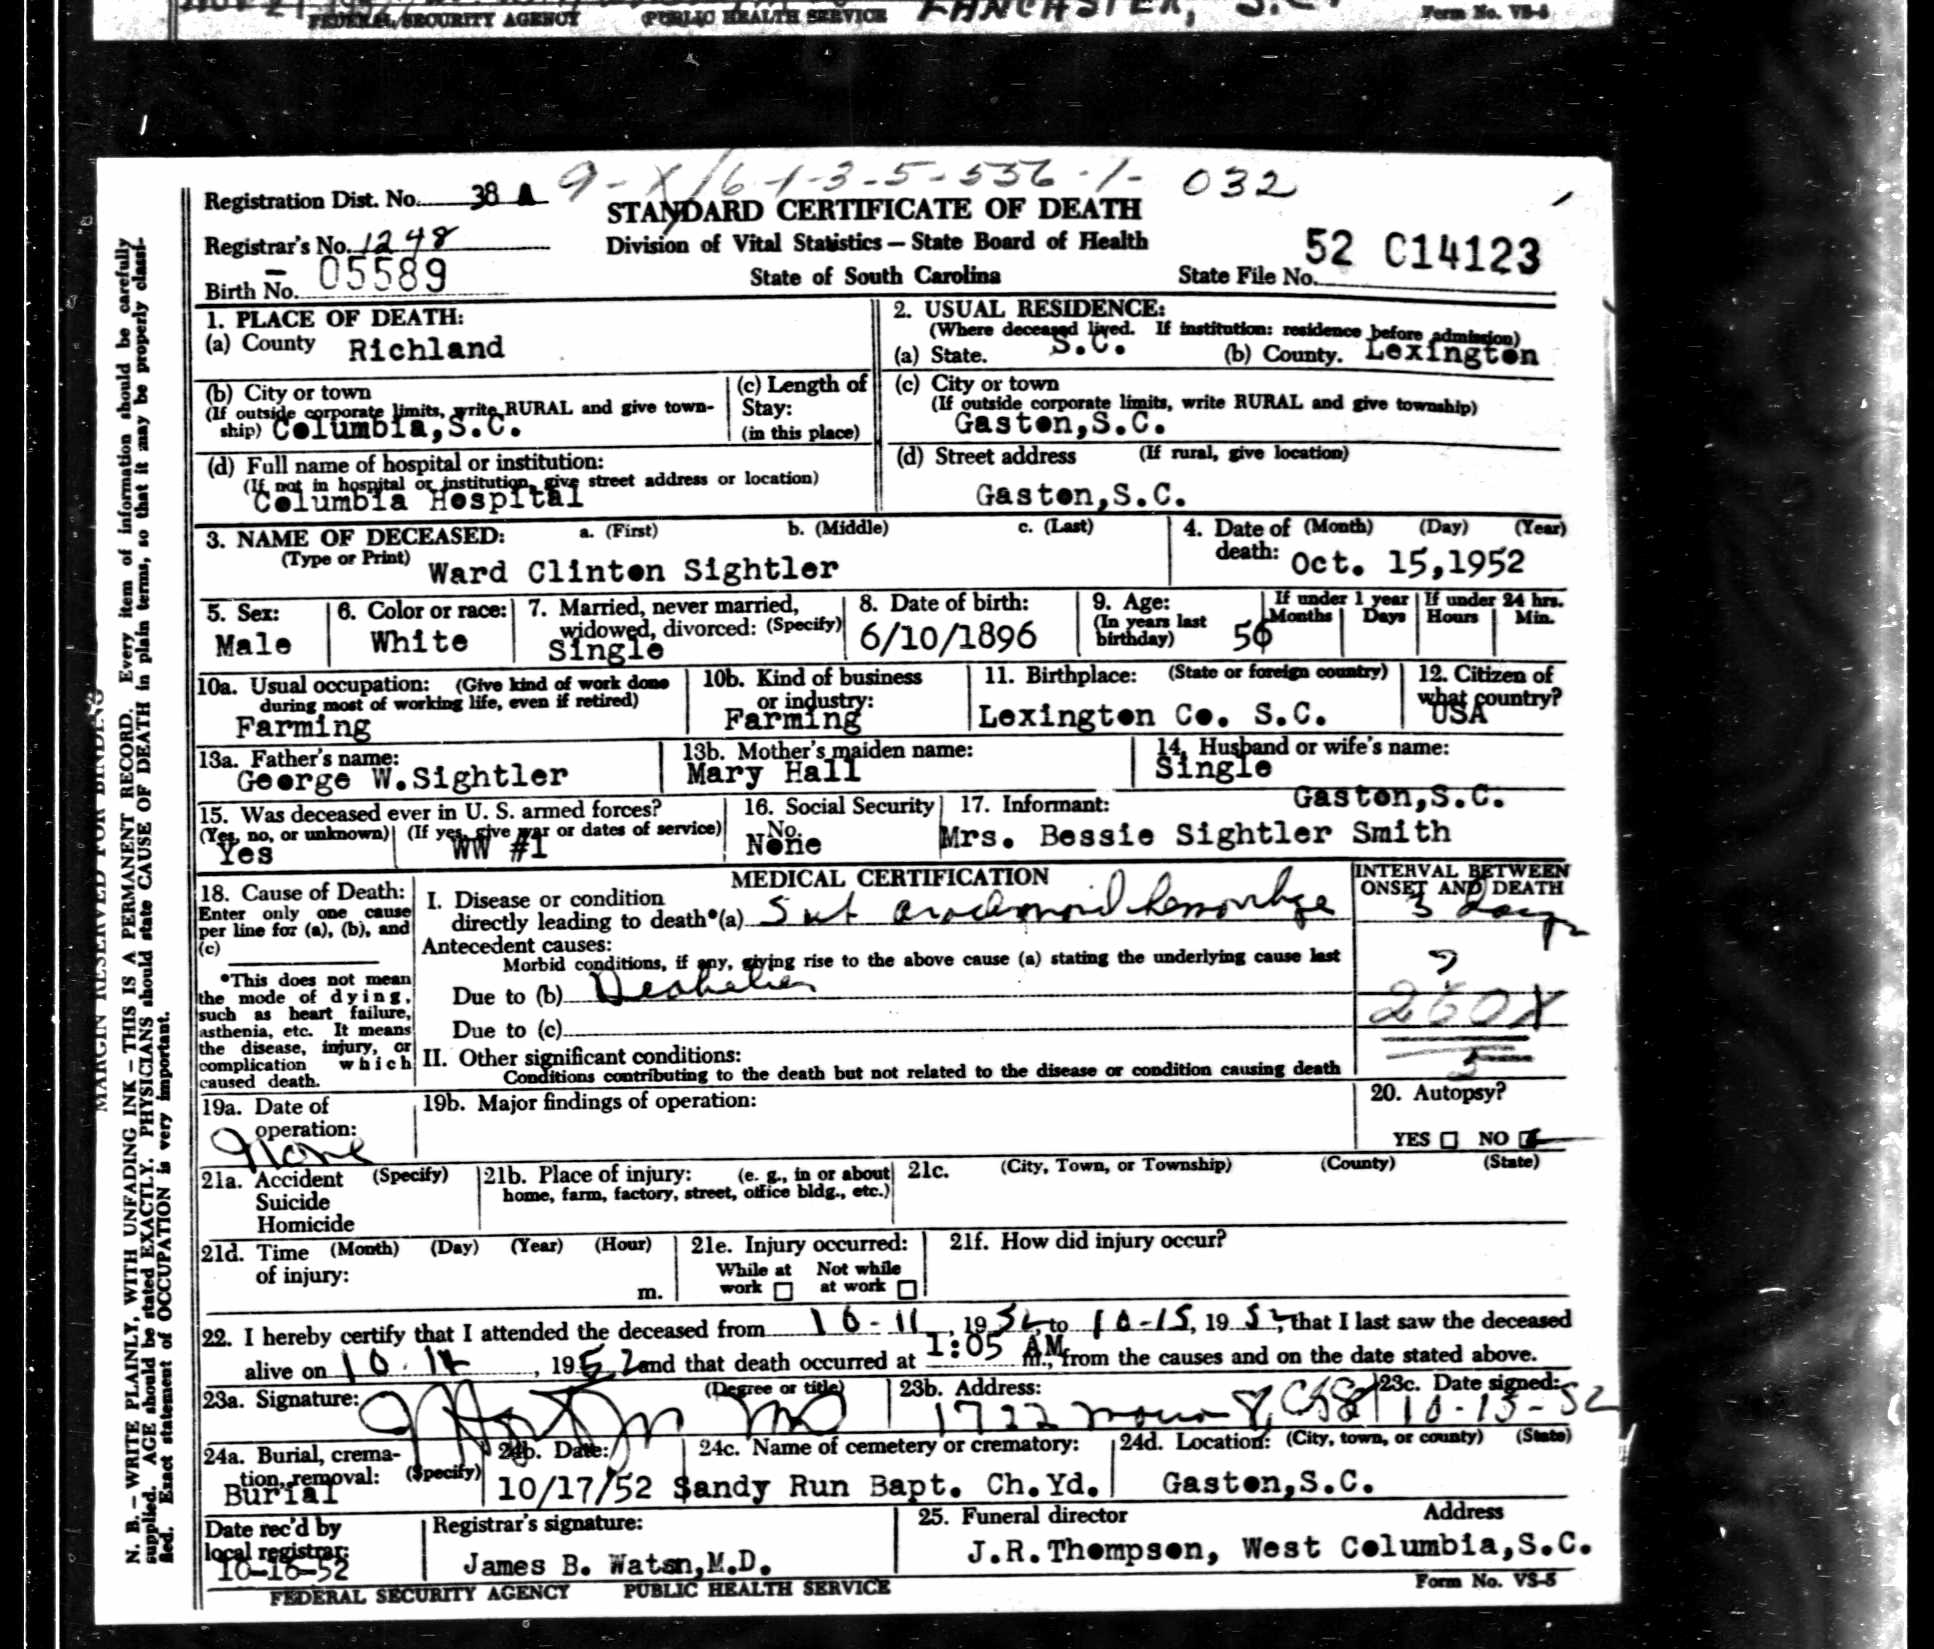 FEDERAL SECURITY AGENCY PUBLIC HEALTH SERVICE LANCASTER, S.C. Form No. VS-5
9-X/6-1-3-5-536-1- 032
Registration Dist. No. 38 A
STANDARD CERTIFICATE OF DEATH
Registrar's No. 1248
Division of Vital Statistics — State Board of Health
52 C14123
Birth No. 05589
State of South Carolina
State File No.
1. PLACE OF DEATH:
(a) County Richland
2. USUAL RESIDENCE:
(Where deceased lived. If institution: residence before admission)
(a) State. S.C. (b) County. Lexington
(b) City or town
(If outside corporate limits, write RURAL and give township) Columbia,S.C.
(c) Length of
Stay:
(in this place)
(c) City or town
(If outside corporate limits, write RURAL and give township)
Gaston,S.C.
(d) Full name of hospital or institution:
(If not in hospital or institution, give street address or location)
Columbia Hospital
(d) Street address (If rural, give location)
Gaston,S.C.
3. NAME OF DECEASED: a. (First) b. (Middle) c. (Last)
(Type or Print) Ward Clinton Sightler
4. Date of (Month) (Day) (Year)
death: Oct. 15,1952
5. Sex:
Male
6. Color or race:
White
7. Married, never married,
widowed, divorced: (Specify)
Single
8. Date of birth:
6/10/1896
9. Age:
(In years last
birthday) 56
If under 1 year
Months Days
If under 24 hrs.
Hours Min.
10a. Usual occupation: (Give kind of work done
during most of working life, even if retired)
Farming
10b. Kind of business
or industry:
Farming
11. Birthplace: (State or foreign country)
Lexington Co. S.C.
12. Citizen of
what country?
USA
13a. Father's name:
George W.Sightler
13b. Mother's maiden name:
Mary Hall
14. Husband or wife's name:
Single
15. Was deceased ever in U. S. armed forces?
(Yes, no, or unknown) (If yes, give war or dates of service)
Yes WW #1
16. Social Security
No.
None
17. Informant: Gaston,S.C.
Mrs. Bessie Sightler Smith
18. Cause of Death:
Enter only one cause
per line for (a), (b), and
(c)
*This does not mean
the mode of dying,
such as heart failure,
asthenia, etc. It means
the disease, injury, or
complication which
caused death.
MEDICAL CERTIFICATION
I. Disease or condition
directly leading to death*(a) Sub arachnoid hemorrhage
Antecedent causes:
Morbid conditions, if any, giving rise to the above cause (a) stating the underlying cause last
Due to (b) Diabetes
Due to (c)
II. Other significant conditions:
Conditions contributing to the death but not related to the disease or condition causing death
INTERVAL BETWEEN
ONSET AND DEATH
3 days
?
260X
5
19a. Date of
operation:
None
19b. Major findings of operation:
20. Autopsy?
YES NO
21a. Accident (Specify)
Suicide
Homicide
21b. Place of injury: (e. g., in or about
home, farm, factory, street, office bldg., etc.)
21c. (City, Town, or Township) (County) (State)
21d. Time (Month) (Day) (Year) (Hour)
of injury: m.
21e. Injury occurred:
While at Not while
work at work
21f. How did injury occur?
22. I hereby certify that I attended the deceased from 10-11, 1952, to 10-15, 1952, that I last saw the deceased
alive on 10.14, 1952 and that death occurred at 1:05 AM m., from the causes and on the date stated above.
23a. Signature: (Degree or title)
MD
23b. Address:
1722
23c. Date signed:
10-15-52
24a. Burial, crema-
tion, removal: (Specify)
Burial
24b. Date:
10/17/52
24c. Name of cemetery or crematory:
Sandy Run Bapt. Ch.Yd.
24d. Location: (City, town, or county) (State)
Gaston,S.C.
Date rec'd by
local registrar:
10-16-52
Registrar's signature:
James B. Watsn,M.D.
25. Funeral director Address
J.R.Thompson, West Columbia,S.C.
FEDERAL SECURITY AGENCY PUBLIC HEALTH SERVICE Form No. VS-5
MARGIN RESERVED FOR BINDING
N. B. — WRITE PLAINLY, WITH UNFADING INK — THIS IS A PERMANENT RECORD. Every item of information should be carefully
supplied. AGE should be stated EXACTLY. PHYSICIANS should state CAUSE OF DEATH in plain terms, so that it may be properly classi-
fied. Exact statement of OCCUPATION is very important.